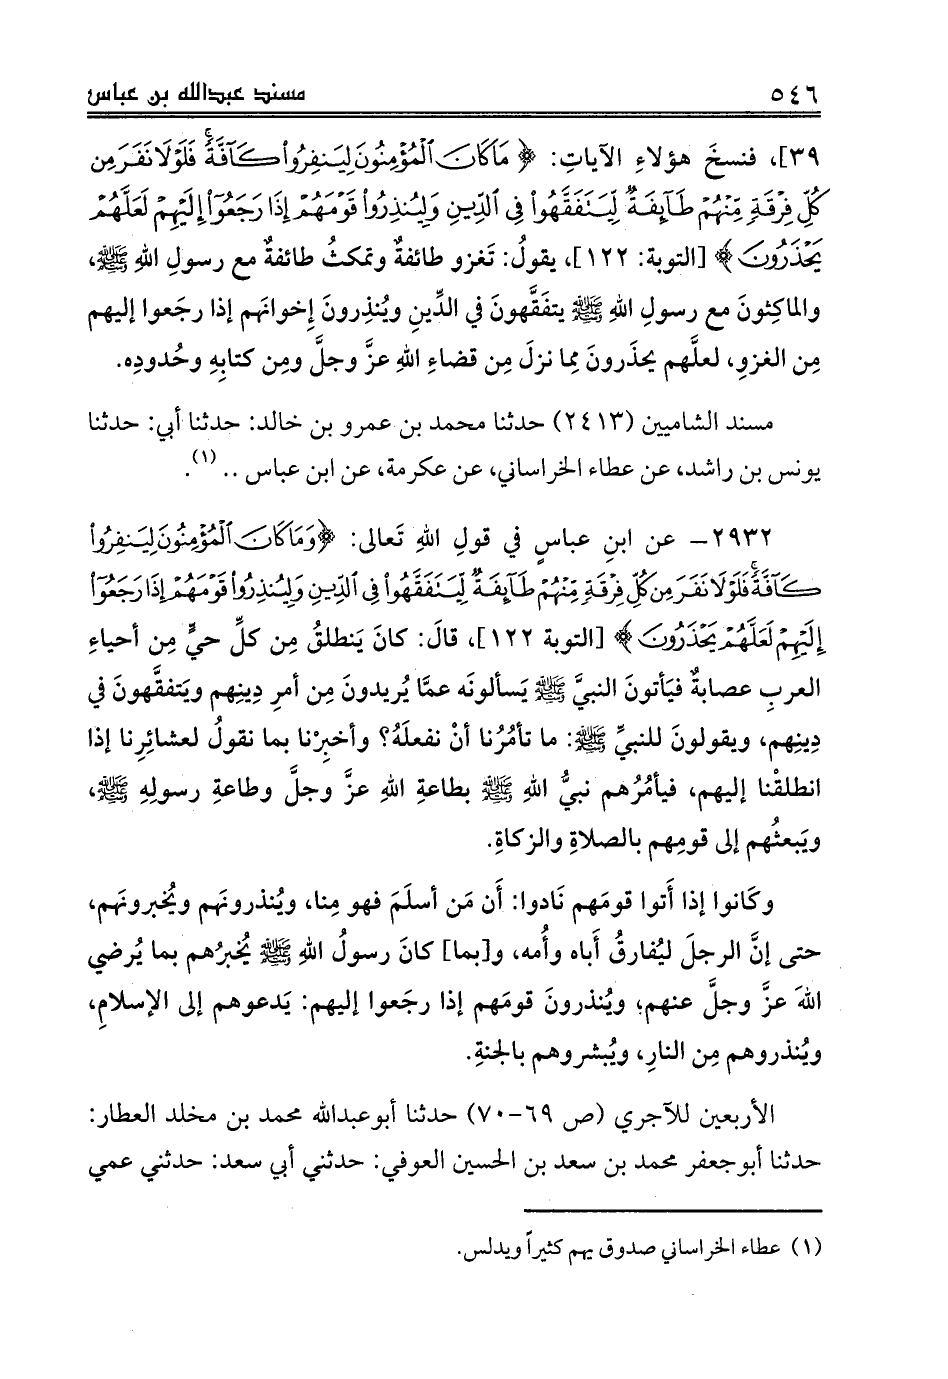 ٥٤٦ مسند عبدالله بن عباس
٣٩]، فنسخَ هؤلاءِ الآياتِ: ﴿مَا كَانَ الْمُؤْمِنُونَ لِيَنفِرُوا كَآفَّةً فَلَوْلَا نَفَرَ مِن
كُلِّ فِرْقَةٍ مِّنْهُمْ طَآئِفَةٌ لِّيَتَفَقَّهُوا فِي الدِّينِ وَلِيُنذِرُوا قَوْمَهُمْ إِذَا رَجَعُوٓا إِلَيْهِمْ لَعَلَّهُمْ
يَحْذَرُونَ﴾ [التوبة: ١٢٢]، يقولُ: تَغزو طائفةٌ وتمكثُ طائفةٌ مع رسولِ اللهِ ﷺ،
والماكِثونَ مع رسولِ اللهِ ﷺ يتفَقَّهونَ في الدِّينِ ويُنذِرونَ إخوانَهم إذا رجَعوا إليهم
مِن الغزوِ، لعلَّهم يحذَرونَ مما نزلَ مِن قضاءِ اللهِ عزَّ وجلَّ ومِن كتابِهِ وحُدودِه.
مسند الشاميين (٢٤١٣) حدثنا محمد بن عمرو بن خالد: حدثنا أبي: حدثنا
يونس بن راشد، عن عطاء الخراساني، عن عكرمة، عن ابن عباس .. (١).
٢٩٣٢- عن ابنِ عباسٍ في قولِ اللهِ تَعالى: ﴿وَمَا كَانَ الْمُؤْمِنُونَ لِيَنفِرُوا
كَآفَّةً فَلَوْلَا نَفَرَ مِن كُلِّ فِرْقَةٍ مِّنْهُمْ طَآئِفَةٌ لِّيَتَفَقَّهُوا فِي الدِّينِ وَلِيُنذِرُوا قَوْمَهُمْ إِذَا رَجَعُوٓا
إِلَيْهِمْ لَعَلَّهُمْ يَحْذَرُونَ﴾ [التوبة ١٢٢]، قالَ: كانَ يَنطلقُ مِن كلِّ حيٍّ مِن أحياءِ
العربِ عصابةٌ فيَأتونَ النبيَّ ﷺ يَسألونَه عمَّا يُريدونَ مِن أمرِ دِينِهم ويَتفقَّهونَ في
دِينِهم، ويقولونَ للنبيِّ ﷺ: ما تأمُرُنا أنْ نفعلَهُ؟ وأخبِرْنا بما نقولُ لعشائِرِنا إذا
انطلقْنا إليهم، فيأمُرُهم نبيُّ اللهِ ﷺ بطاعةِ اللهِ عزَّ وجلَّ وطاعةِ رسولِهِ ﷺ،
ويَبعثُهم إلى قومِهم بالصلاةِ والزكاةِ.
وكَانوا إذا أَتوا قومَهم نَادوا: أَن مَن أسلَمَ فهو مِنا، ويُنذرونَهم ويُخبرونَهم،
حتى إنَّ الرجلَ ليُفارقُ أَباه وأُمه، و[بما] كانَ رسولُ اللهِ ﷺ يُخبرُهم بما يُرضي
اللهَ عزَّ وجلَّ عنهم؛ ويُنذرونَ قومَهم إذا رجَعوا إليهم: يَدعوهم إلى الإسلامِ،
ويُنذروهم مِن النارِ، ويُبشروهم بالجنةِ.
الأربعين للآجري (ص ٦٩-٧٠) حدثنا أبوعبدالله محمد بن مخلد العطار:
حدثنا أبوجعفر محمد بن سعد بن الحسين العوفي: حدثني أبي سعد: حدثني عمي
(١) عطاء الخراساني صدوق يهم كثيراً ويدلس.